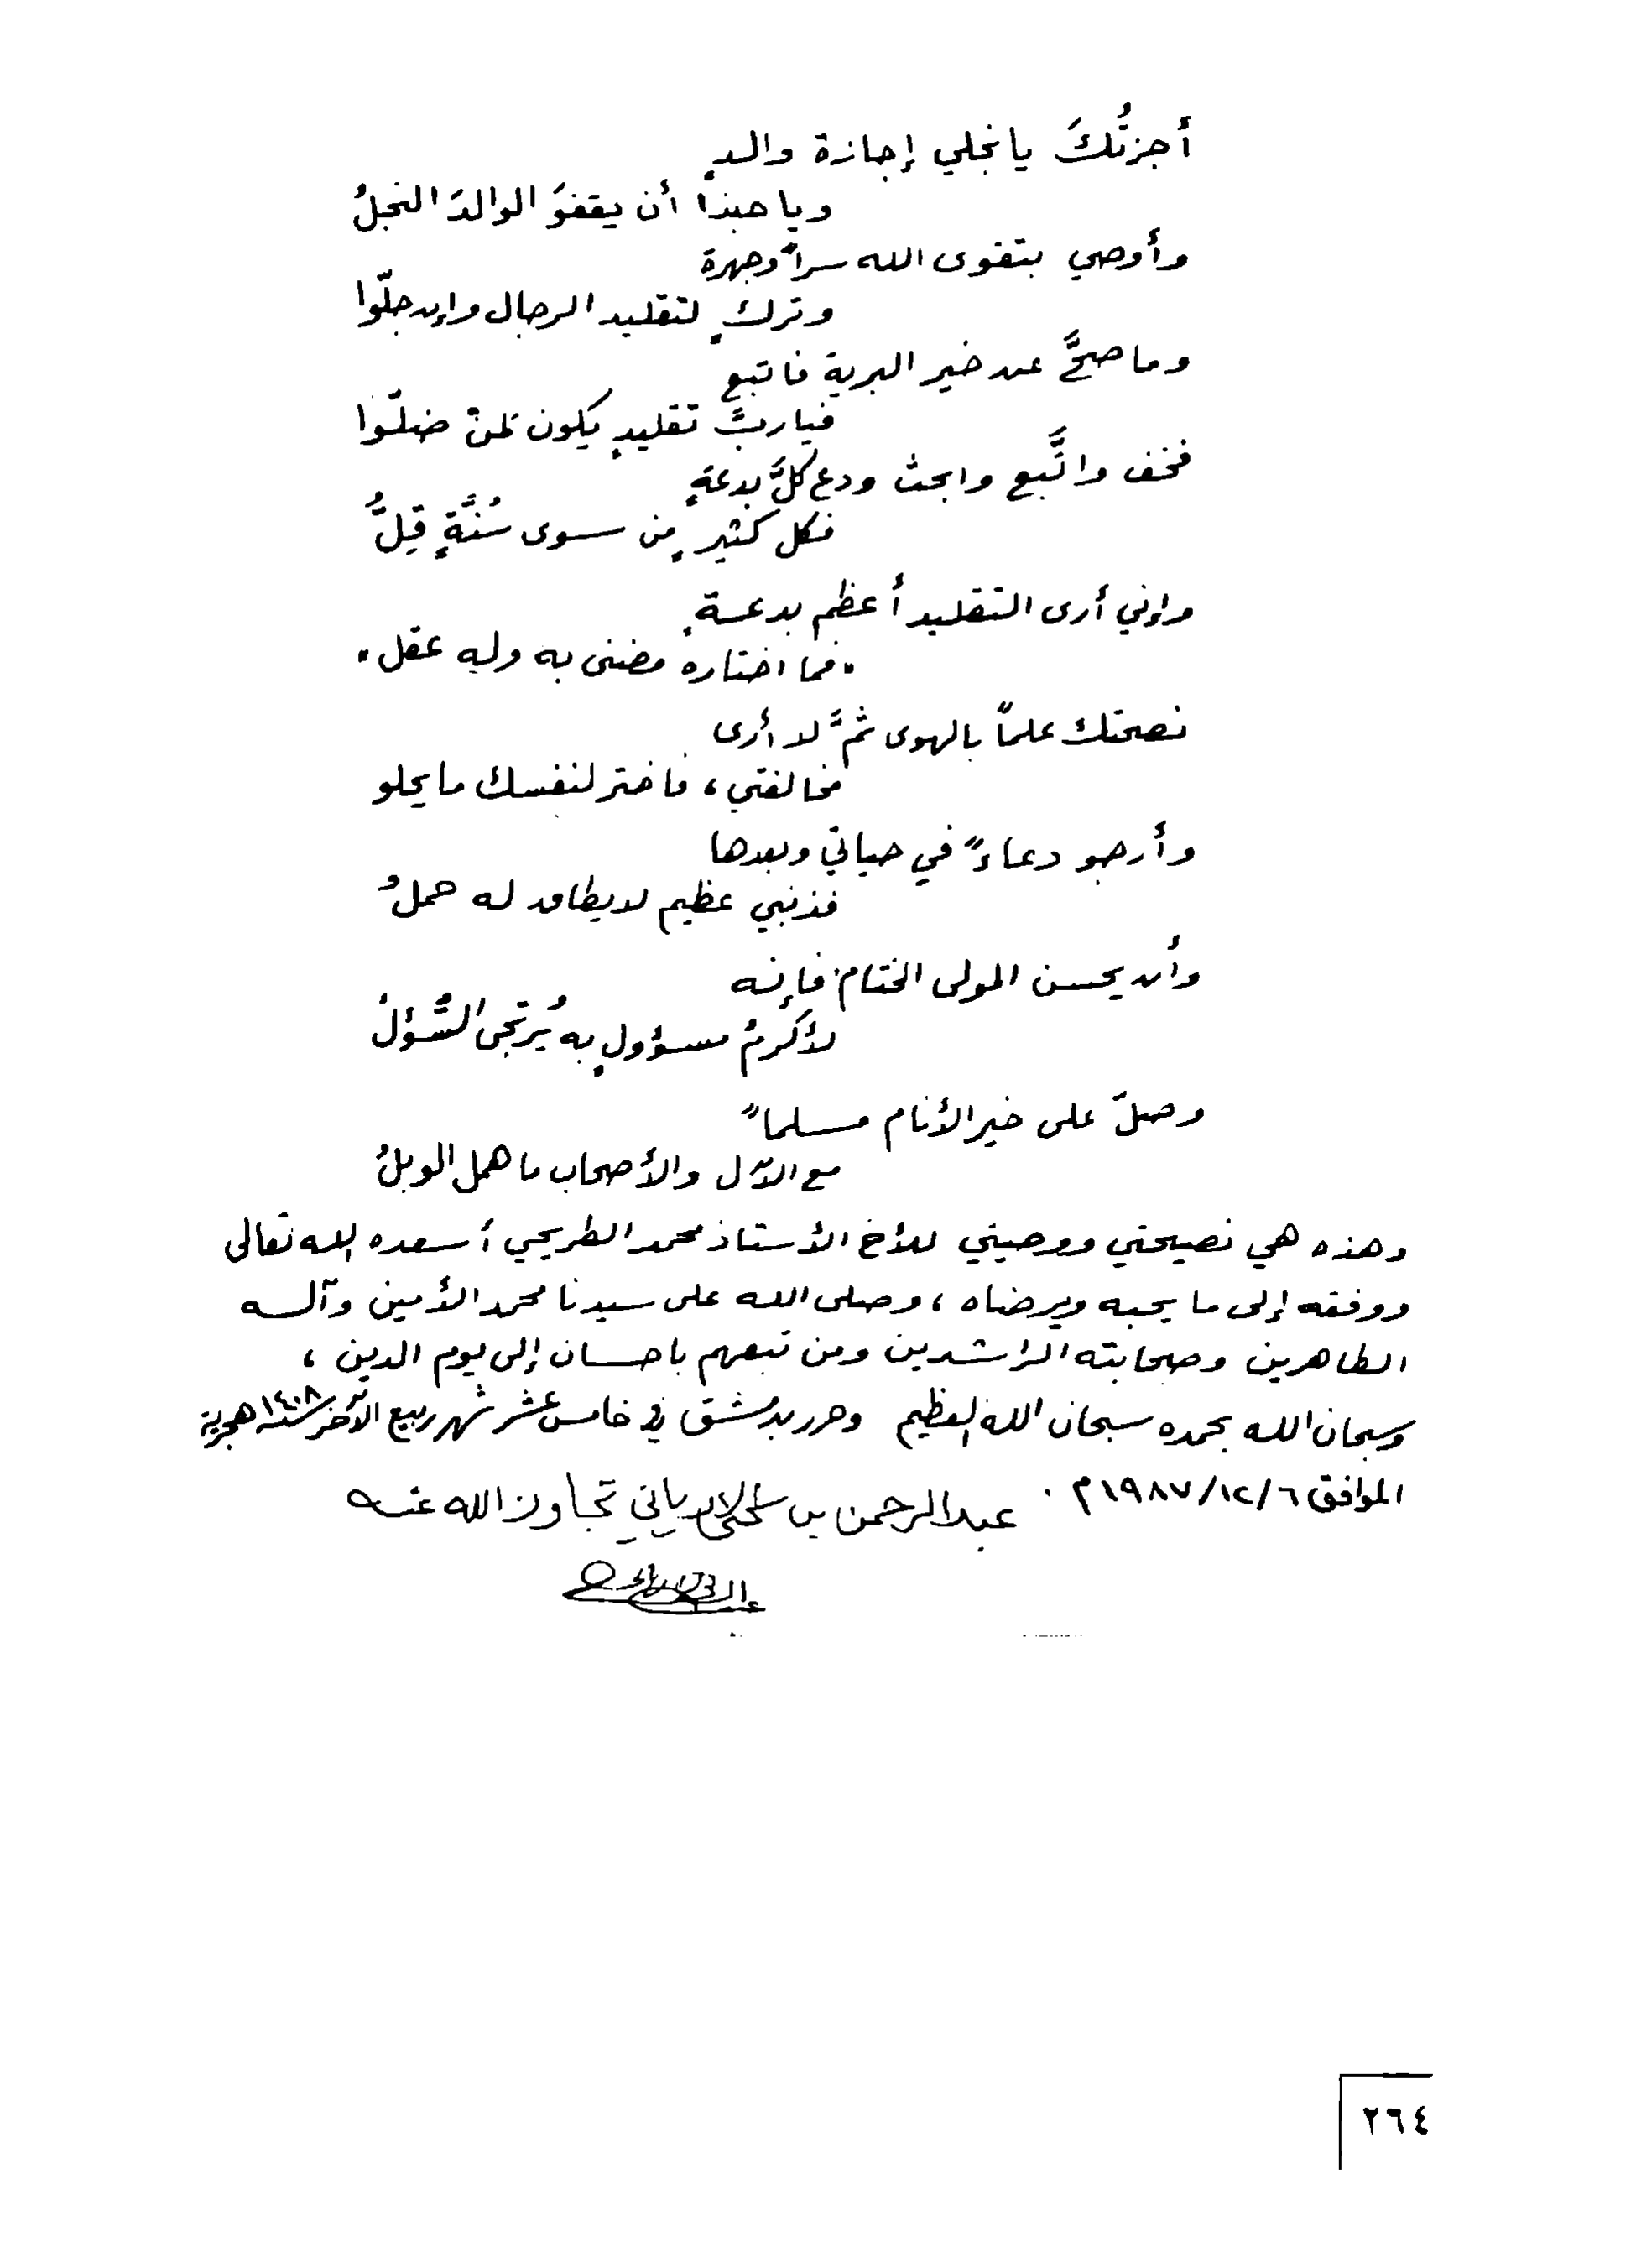 أجزتُكَ يا نجلي إجازة والدٍ
ويا حبذا أن يقفوَ الوالدَ النجلُ
وأوصي بتقوى الله سراً وجهرة
وتركٍ لتقليد الرجال وإن جلّوا
وما صحَّ عن خير البرية فاتبع
فيا ربَّ تقليدٍ يكون لمنْ ضلّوا
فخف واتَّبع وابحث ودع كلَّ بدعةٍ
فكل كثيرٍ من سوى سُنَّةٍ قِلُّ
وإني أرى التقليد أعظم بدعةٍ
"فما اختاره مضنى به وله عقل"
نصحتك علماً بالهوى ثمَّ لا أرى
مخالفتي، فاختر لنفسك ما يحلو
وأرجو دعاءً في حياتي وبعدها
فذنبي عظيم لا يطاق له حملُ
وأن يحسن المولى الختام فإنه
لأكرمُ مسؤولٍ به يُرتجى السُّؤلُ
وصلّ على خير الأنام مسلماً
مع الآل والأصحاب ما همل الوبلُ
وهذه هي نصيحتي ووصيتي للأخ الأستاذ محمد الطريحي أسعده الله تعالى
ووفقه إلى ما يحبه ويرضاه، وصلى الله على سيدنا محمد الأمين وآله
الطاهرين وصحابته الراشدين ومن تبعهم بإحسان إلى يوم الدين،
وسبحان الله بحمده سبحان الله العظيم وحرر بدمشق في خامس عشر شهر ربيع الآخر سنة ١٤٠٨ هجرية
الموافق ٦/١٢/١٩٨٧م. عبد الرحمن بن تجاوز الله عنه
٢٦٤